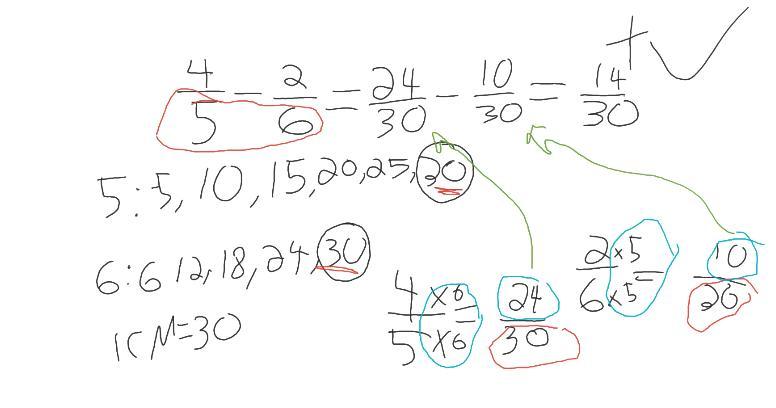 4/5 - 2/6 = 24/30 - 10/30 = 14/30 + ✓
5:5,10,15,20,25,20
6:6 12,18,24,30
lCM=30
4×6/5×6 = 24/30
2×5/6×5 = 10/20